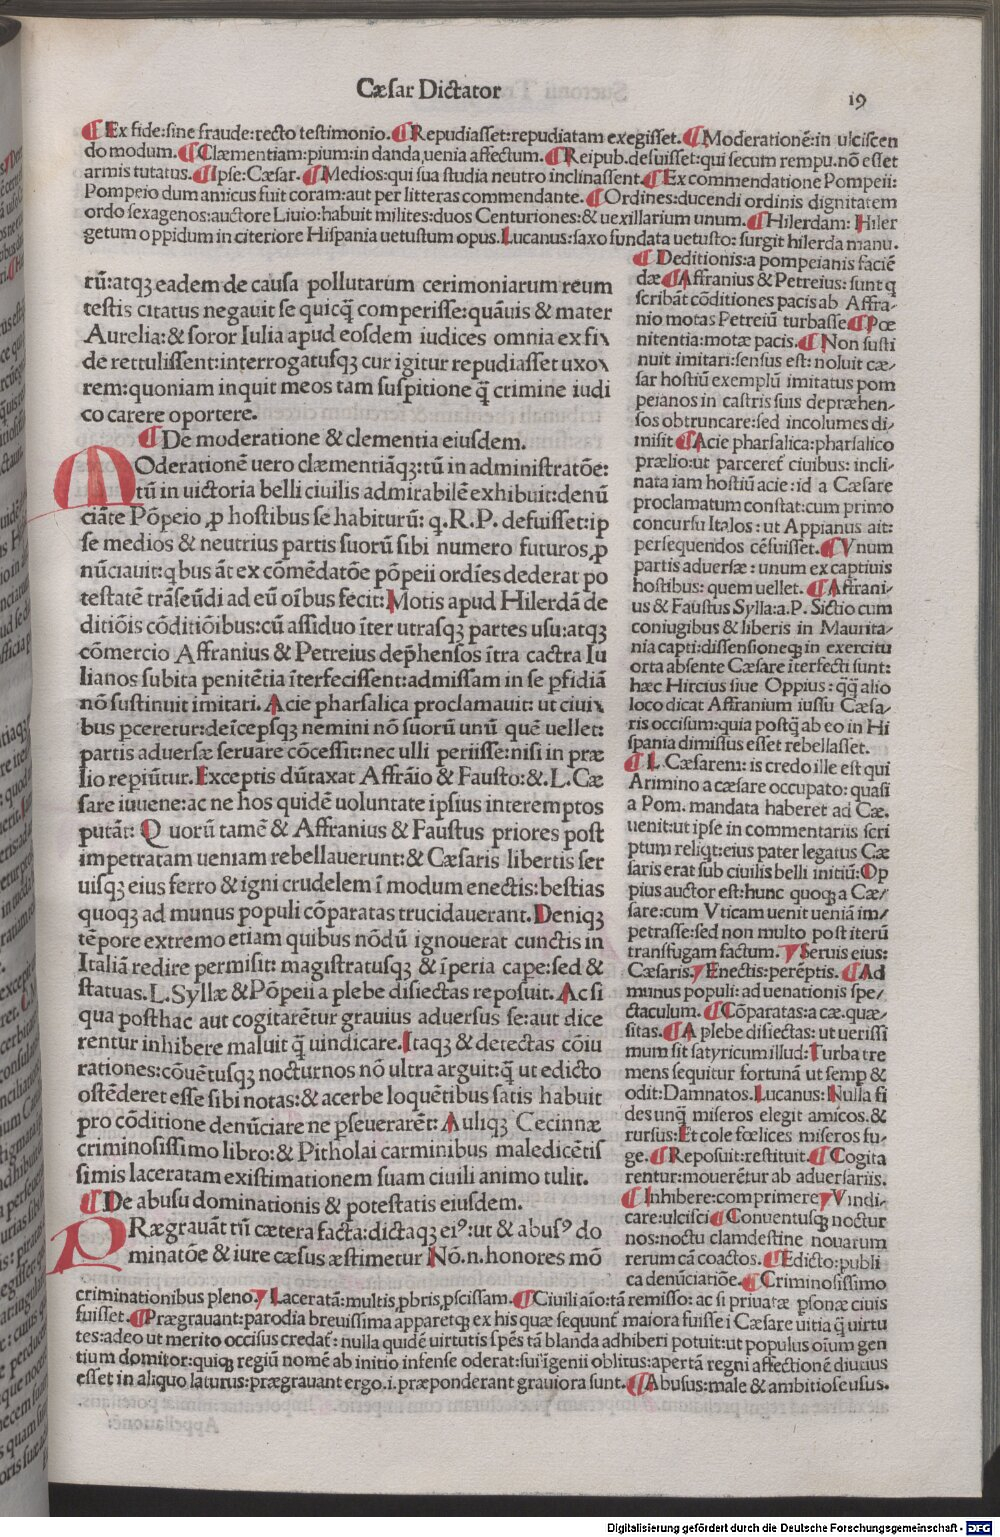 Cæsar Dictator
19
¶ Ex fide:sine fraude:recto testimonio. ¶ Repudiasset:repudiatam exegisset. ¶ Moderationē:in ulciscen
do modum. ¶ Clæmentiam:pium:in danda uenia affectum. ¶ Reipub.defuisset:qui secum rempu.nō esset
armis tutatus. ¶ Ipse:Cæsar. ¶ Medios:qui sua studia neutro inclinassent. ¶ Ex commendatione Pompeii:
Pompeio dum amicus fuit coram:aut per litteras commendante. ¶ Ordines:ducendi ordinis dignitatem
ordo sexagenos:auctore Liuio:habuit milites:duos Centuriones:& uexillarium unum. ¶ Hilerdam: Hiler
getum oppidum in citeriore Hispania uetustum opus. Lucanus:saxo fundata uetusto: surgit hilerda manu.
rū:atqꝫ eadem de causa pollutarum cerimoniarum reum
testis citatus negauit se quicq̄ comperisse:quāuis & mater
Aurelia:& soror Iulia apud eosdem iudices omnia ex fi\
de rettulissent:interrogatusqꝫ cur igitur repudiasset uxo\
rem:quoniam inquit meos tam suspitione q̄ crimine iudi
co carere oportere.
¶ De moderatione & clementia eiusdem.
MOderationē uero clæmentiāqꝫ:tū in administratōe:
tū in uictoria belli ciuilis admirabilē exhibuit:denū
ciāte Pōpeio ꝓ hostibus se habiturū: q.R.P. defuisset:ip
se medios & neutrius partis suorū sibi numero futuros ꝓ
nūciauit:qbus āt ex cōmēdatōe pōpeii ordīes dederat po
testatē trāseūdi ad eū oībus fecit: Motis apud Hilerdā de
ditiōis cōditiōibus:cū assiduo īter utrasqꝫ partes usu:atqꝫ
cōmercio Affranius & Petreius dep̄hensos ītra cactra Iu
lianos subita penitētia īterfecissent:admissam in se ꝑfidiā
nō sustinuit imitari. Acie pharsalica proclamauit: ut ciui\
bus ꝑceretur:deīcepsqꝫ nemini nō suorū unū quē uellet:
partis aduersæ seruare cōcessit:nec ulli periisse:nisi in præ
lio repiūtur. Exceptis dūtaxat Affrāio & Fausto:&.L.Cæ
sare iuuene:ac ne hos quidē uoluntate ipsius interemptos
putāt: Quorū tamē & Affranius & Faustus priores post
impetratam ueniam rebellauerunt:& Cæsaris libertis ser
uisqꝫ eius ferro & igni crudelem ī modum enectis:bestias
quoqꝫ ad munus populi cōparatas trucidauerant. Deniqꝫ
tēpore extremo etiam quibus nōdū ignouerat cunctis in
Italiā redire permisit: magistratusqꝫ & īperia cape:sed &
statuas.L.Syllæ & Pōpeii a plebe disiectas reposuit. Ac si
qua posthac aut cogitarētur grauius aduersus se:aut dice
rentur inhibere maluit q̄ uindicare. Itaqꝫ & detectas cōiu
rationes:cōuētusqꝫ nocturnos nō ultra arguit:q̄ ut edicto
ostēderet esse sibi notas:& acerbe loquētibus satis habuit
pro cōditione denūciare ne ꝑseuerarēt: Auliqꝫ Cecinnæ
criminosissimo libro:& Pitholai carminibus maledicētis
simis laceratam existimationem suam ciuili animo tulit.
¶ De abusu dominationis & potestatis eiusdem.
PRægrauāt tū cætera facta:dictaqꝫ eiꝰ:ut & abusꝰ do
minatōe & iure cæsus æstimetur Nō.n.honores mō
¶ Deditionis:a pompeianis faciē
dæ ¶ Affranius & Petreius: sunt q
scribāt cōditiones pacis ab Affra/
nio motas Petreiū turbasse ¶ Pœ
nitentia:motæ pacis. ¶ Non susti
nuit imitari:sensus est: noluit cæ/
sar hostiū exemplū imitatus pom
peianos in castris suis depræhen/
sos obtruncare:sed incolumes di/
misit ¶ Acie pharsalica:pharsalico
prælio:ut parceret᷑ ciuibus: incli/
nata iam hostiū acie:id a Cæsare
proclamatum constat:cum primo
concursu Italos: ut Appianus ait:
persequendos cēsuisset. ¶ Vnum
partis aduersæ: unum ex captiuis
hostibus: quem uellet. ¶ Affrani/
us & Faustus Sylla:a.P. Sictio cum
coniugibus & liberis in Maurita/
nia capti:dissensioneqꝫ in exercitu
orta absente Cæsare īterfecti sunt:
hæc Hircius siue Oppius: q̄q̄ alio
loco dicat Affranium iussu Cæsa/
ris occisum:quia postq̄ ab eo in Hi
spania dimissus esset rebellasset.
¶ L. Cæsarem: is credo ille est qui
Arimino a cæsare occupato: quasi
a Pom. mandata haberet ad Cæ.
uenit:ut ipse in commentariis scri
ptum reliqt:eius pater legatus Cæ
saris erat sub ciuilis belli initiū: Op
pius auctor est:hunc quoqꝫ a Cæ/
sare:cum Vticam uenit ueniā im/
petrasse:sed non multo post iterū
transfugam factum. Seruis eius:
Cæsaris. Enectis:perēptis. ¶ Ad
munus populi: ad uenationis spe/
ctaculum. ¶ Cōparatas:a cæ.quæ/
sitas. ¶ A plebe disiectas: ut uerissi
mum sit satyricum illud: Turba tre
mens sequitur fortunā ut semp &
odit:Damnatos. Lucanus: Nulla fi
des unq̄ miseros elegit amicos.&
rursus: Et cole fœlices miseros fu/
ge. ¶ Reposuit:restituit. ¶ Cogita
rentur:mouerētur ab aduersariis.
¶ Inhibere:comprimere Vindi/
care:ulcisci ¶ Conuentusqꝫ noctur
nos:noctu clamdestine nouarum
rerum cā coactos. ¶ Edicto:publi
ca denūciatiōe. ¶ Criminosissimo
criminationibus pleno Laceratā:multis ꝓbris ꝓscissam. ¶ Ciuili aīo:tā remisso: ac si priuatæ ꝑsonæ ciuis
fuisset. ¶ Prægrauant:parodia breuissima apparetqꝫ ex his quæ sequunt᷑ maiora fuisse ī Cæsare uitia q̄ uirtu
tes:adeo ut merito occisus credat᷑: nulla quidē uirtutis spēs tā blanda adhiberi potuit:ut populus oīum gen
tium domitor:quiqꝫ regiū nomē ab initio infense oderat:sui īgenii oblitus:apertā regni affectionē diutius
esset in aliquo laturus:prægrauant ergo.i.præponderant grauiora sunt. ¶ Abusus:male & ambitiose usus.
Digitalisierung gefördert durch die Deutsche Forschungsgemeinschaft - DFG